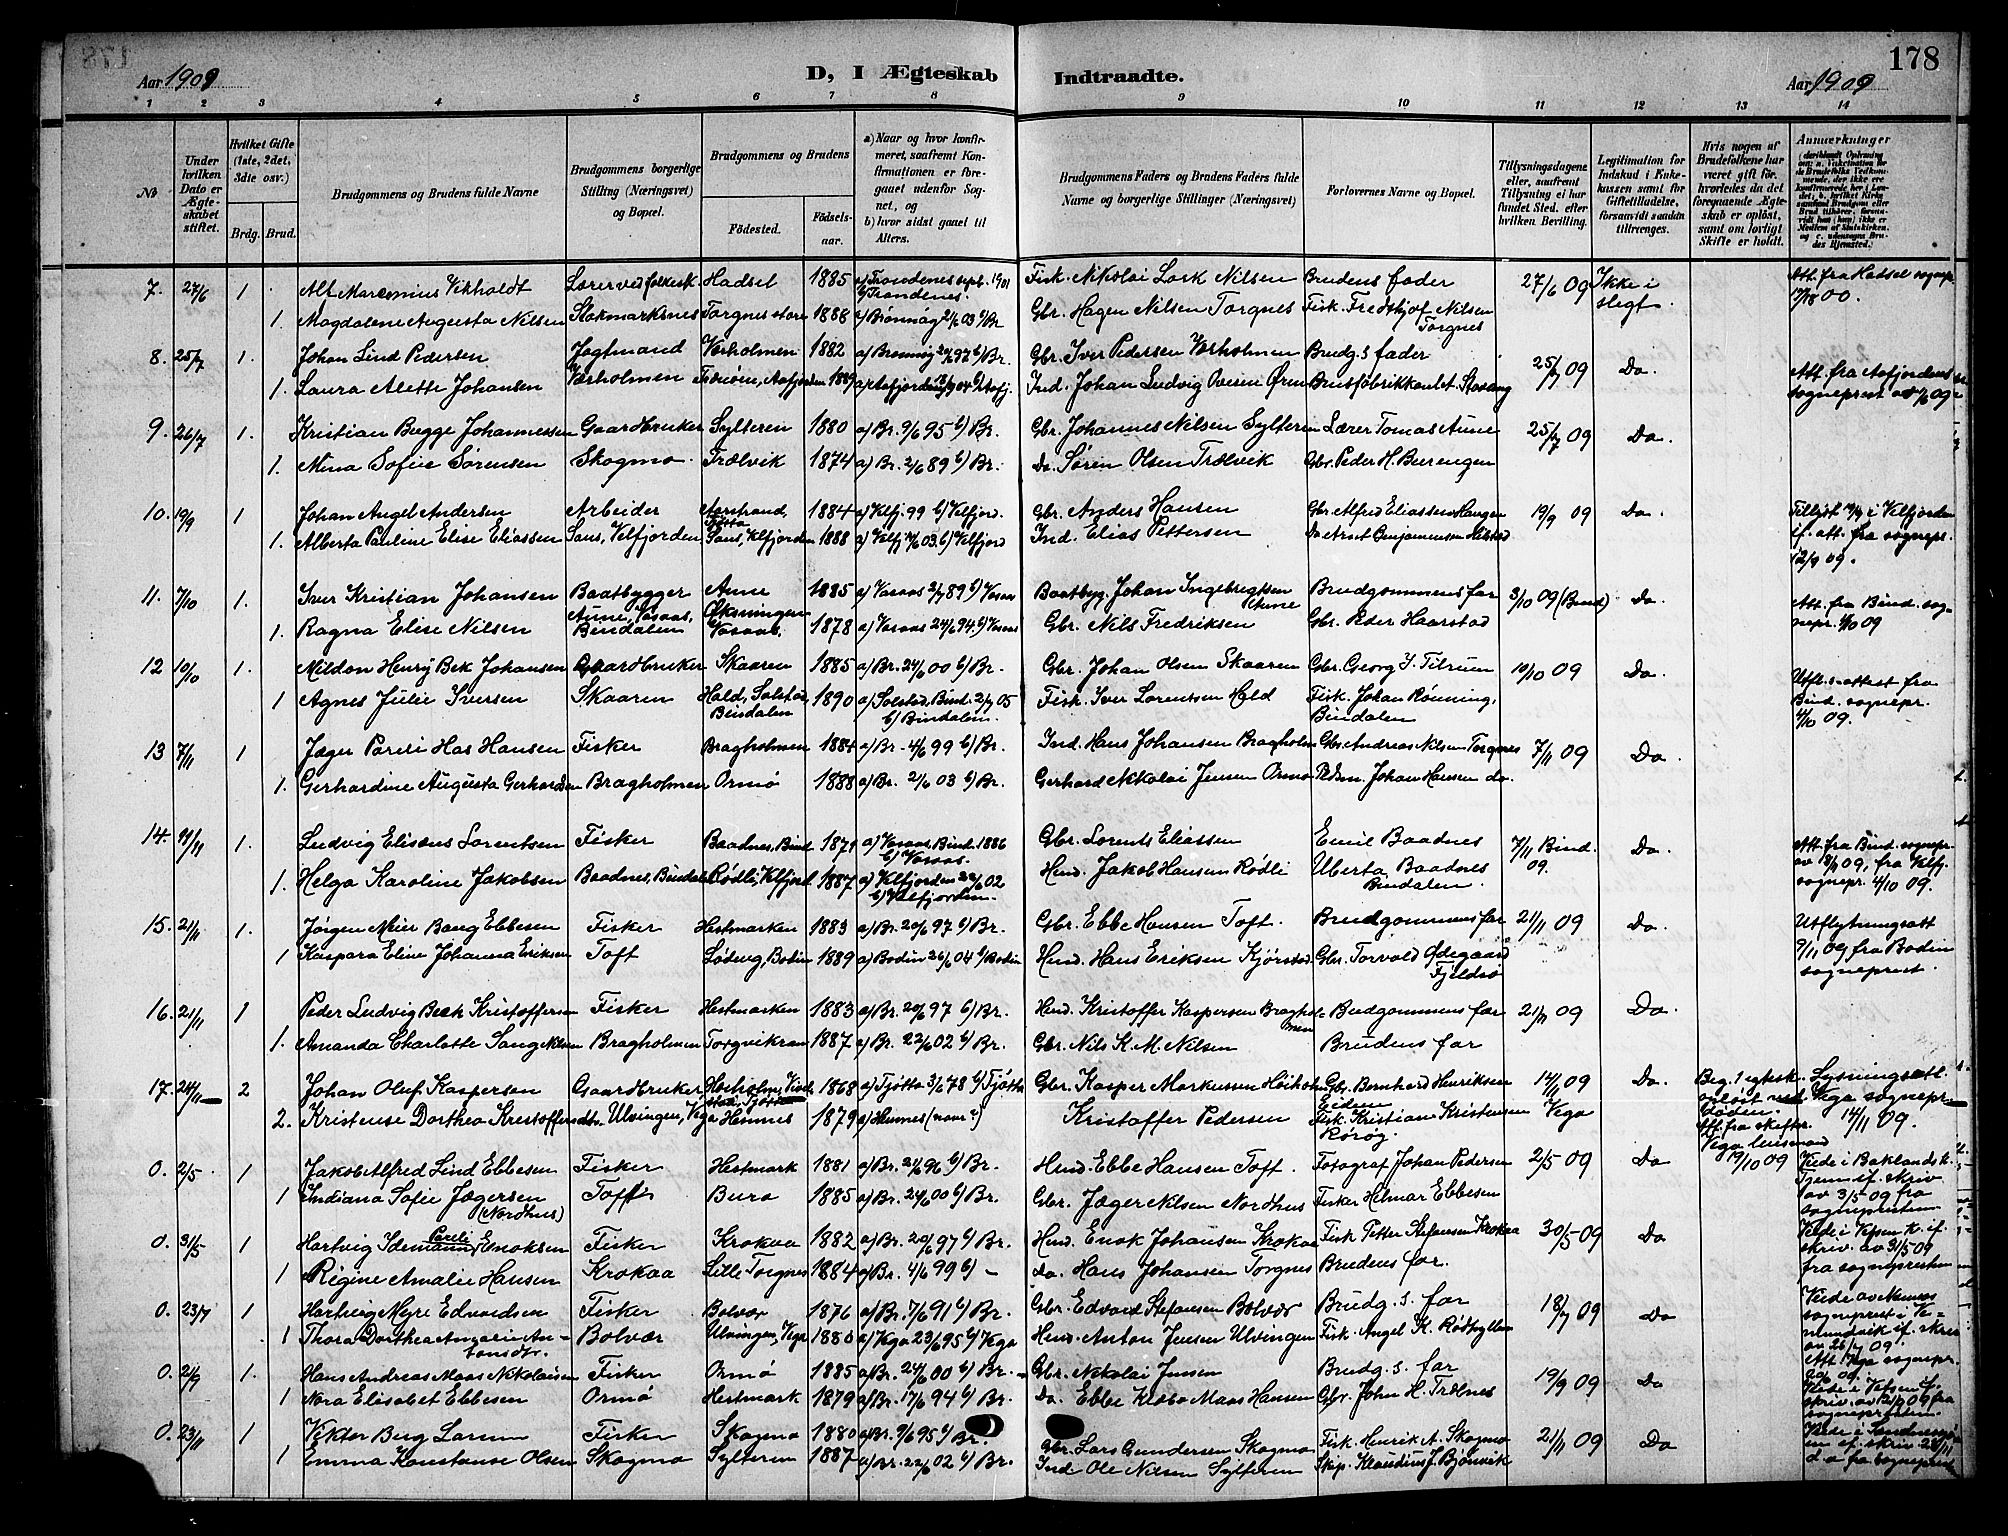 178
Aar 1909
D, I Ægteskab Indtraadte.
Aar 1909
1 2 3 4 5 6 7 8 9 10 11 12 13 14
№
Under hvilken Dato er Ægteskabet stiftet.
Hvilket Gifte (1ste, 2det, 3die osv.)
Brdg. Brud.
Brudgommens og Brudens fulde Navne
Brudgommens borgerlige Stilling (Næringsvei) og Bopæl.
Brudgommens og Brudens
Fødested. Fødselsaar.
a) Naar og hvor konfirmeret, saafremt Konfirmationen er foregaaet udenfor Sognet, og
b) hvor sidst gaaet til Alters.
Brudgommens Faders og Brudens Faders fulde Navne og borgerlige Stillinger (Næringsvei)
Forlovernes Navne og Bopæl.
Tillysningsdagene eller, saafremt Tillysning ei har fundet Sted, efter hvilken Bevilling.
Legitimation for Indskud i Enkekassen samt for Giftetilladelse, forsaavidt saadan tiltrænges.
Hvis nogen af Brudefolkene har været gift før, hvorledes da det foregaaende Ægteskab er opløst, samt om lovligt Skifte er holdt.
Anmærkninger
7. 27/6 1 Alf Marenius Vikholdt Lærer ved folkesk. Hadsel 1885 a) Trondenes sept. 1901 b) Trondenes. Fisk. Nikolai Lork Nilsen Brudens fader 27/6 09 Ikke i slegt Att. fra Hadsel sognepr. 17/8 00.
1. Magdalene Augusta Nilsen Stokmarknes Torgnes store 1888 a) Brønnøy 21/6 03 b) Br Gbr. Hagen Nilsen Torgnes Fisk. Fredthjof Nilsen Torgnes
8. 25/7 1. Johan Lind Pedersen Jagtmand Værholmen 1882 a) Brønnøy 20/6 97 b) Br. Gbr. Iver Pedersen Værholmen Brudg.s fader 25/7 09 Do. Att. fra Aafjordens sogneprest
1. Laura Alette Johansen Værholmen Aafjorden 1889 Ind. Johan Ludvig Ovesen Ørn
9. 26/7 1. Kristian Bugge Johannessen Gaardbruker Sylteren 1880 a) Br. 9/6 95 b) Br. Gbr. Johannes Nilsen Sylteren Lærer Tomas Aune 25/7 09 Do.
1. Nina Sofie Sørensen Skogmo. Trælvik 1874 a) Br. 2/6 89 b) Br. Do. Søren Olsen Trælvik Gbr. Peder H. Beerengen
10. 19/9 1 Johan Angel Andersen Arbeider Aarstrand, 1884 a) Velfj. 99 b) Velfjord. Gbr. Anders Hansen Gbr. Alfred Eliassen Haugen 19/9 09 Do. Tillyst i Velfjorden if. att. fra sognepr. 12/9 09.
1. Alberta Pauline Elise Eliassen Saus, Velfjorden Saus, Velfjorden 1888 Ind. Elias Pettersen Do Arnt Benjaminsen Hilstad
11. 7/10 1. Iver Kristian Johansen Baatbygger Aune 1885 b) Vasaas Baatbyg. Johan Ingebrigtsen Aune Brudgommens far 3/10 09 (Bind.) Do. Att. fra Bind. sognepr. 4/10 09
1. Ragna Elise Nilsen Aune, Vasaas, Bindalen Vasaas. 1878 a) Vasaas 24/6 94. b) Vasaas Gbr. Nils Fredriksen Gbr. Peder Haarstad
12 10/10 1. Mildon Henry Bek Johansen Gaardbruker Skaaren 1885 a) Br. 24/6 00 b) Br. Gbr. Johan Olsen Skaaren Gbr. Georg Y. Tilrum 10/10 09 Do. Utfl.s-attest fra Bind. sognepr. 4/10 09.
1 Agnes Julie Iversen Skaaren Hald, Solstad, Bindalen 1890 a) Solstad, Bind. 2/7 05 b) Bindalen. Fisk. Iver Lorentsen Hald Fisk. Johan Rønning, Bindalen
13 7/11 1 Jæger Pareli Has Hansen Fisker Bragholmen 1884 a) Br. 4/6 99 b) Br. Ind. Hans Johansen Bragholm. Gbr. Andreas Nilsen Torgnes 7/11 09 Do.
1. Gerhardine Augusta Gerhardsen Bragholmen Ormø 1888 a) Br. 21/6 03 b) Br. Gerhard Nikolai Jensen Ormø Pedsm. Johan Hansen do.
14. 11/11 1. Ludvig Eliseus Lorentsen Fisker Baadnes, Bind. 1871 a) Vasaas, Bind. 1886 b) Vasaas. Gbr. Lorents Eliassen Emil Baadnes 7/11 Bind. 09. Do. Att. fra Bind. sognepr. fra Velfj. sognepr. 4/10 09.
1. Helga Karoline Jakobsen Baadnes, Bindalen Rødli, Velfjord 1887 a) Velfjorden 22/6 02 b) Velfjorden. Husm. Jakob Hansen Rødli Uberta Baadnes Bindalen
15. 21/11 1. Jørgen Meier Bang Ebbesen Fisker Hestmarken 1883 a) Br. 20/6 97 b) Br. Gbr. Ebbe Hansen Toft. Brudgommens far 21/11 09 Do. Utflytningsatt. 9/11 09 fra Bodin sogneprest.
1 Kaspara Eline Johanna Eriksen Toft Løding, Bodin 1889 a) Bodin 26/6 04 b) Bodin Husm. Hans Eriksen Kjørstad Gbr. Torvald Ødegaard Fjeldsø
16. 21/11 1 Peder Ludvig Beck Kristoffersen Fisker Hestmarken 1883 a) Br. 20/6 97 b) Br. Husm. Kristoffer Kaspersen Bragholmen Brudgommens far 21/11 09 Do.
1. Amanda Charlotte Sang Nilsen Bragholmen Torgvikran 1887 a) Br. 22/6 02 b) Br. Gbr. Nils K. M. Nilsen Brudens far
17. 24/11 2 Johan Oluf Kaspersen Gaardbruker 1868 b) Tjøtta Gbr. Kasper Markussen Høiholm Gbr. Bernhard Henriksen Eidem 14/11 09 Vega Do. Beg. 1 egtesk. opløst ved døden. Att. fra skiftr. Vega lensmand 19/10 09 Lysningsatt. Vega sognepr. 14/11 09.
2. Kristense Dorthea Kristoffersdtr. Ulvingen, Vega Hemnes 1879 a) Hemnes (naar?) Kristoffer Pedersen Fisk. Kristian Kristensen Rørøy.
0. 2/5 1 Jakob Alfred Lind Ebbesen Fisker Hestmark 1881 a) Br. 21/6 96 b) Br. Husm. Ebbe Hansen Toft. Fotograf Johan Pedersen 2/5 09 Do Viede i Baklandsk. Tjem if. skriv. av 3/5 09 fra sogneprestem
1 Indiana Sofie Jægersen (Nordhus) Toft Bura 1885 a) Br. 24/6 00 b) Br. Gbr. Jæger Nilsen Nordhus Fisker Hilmar Ebbesen
0. 31/5 1 Hartvig Idemann Pareli Enoksen Fisker Krokaa 1882 a) Br. 20/6 97 b) Br. Husm. Enok Johansen Krokaa Fisk. Petter Stefansen Krokaa 30/5 09 Do Viede i Vefsen k. if. skriv. av 31/5 09 fra sognepresten
1 Regine Amalie Hansen Krokaa Lille Torgnes 1884 a) Br. 4/6 99 b) – Do. Hans Johansen Torgnes Brudens far.
0. 23/7 1 Hartvig Meyre Edvardsen Fisker Bolvær 1876 a) Br. 7/6 91 b) Br. Gbr. Edvard Stefansen Bolvær Brudg.s. far 18/7 09 Do
1 Thora Dorthea Amalie Antonsdtr. Bolvær Ulvingen, Vega 1880 a) Vega 23/6 95 b) Vega Husm. Anton Jensen Ulvingen Fisk. Angel K. Rødhyllen
0. 21/9 1. Hans Andreas Maas Nikolaisen Fisker Ormø 1885 a) Br. 24/6 00 b) Br. Gbr. Nikolai Jensen Brudg.s. far 19/9 09 Do
1 Nora Elisabet Ebbesen Ormø Hestmark 1879 a) Br. 17/6 94 b) Br. Do. Ebbe Klæbo Maas Hansen Gbr. John H. Trælnes
0. 23/11 1 Vektor Berg Larsen Fisker Skogmo 1880 a) Br. 9/6 95 b) Br. Gbr. Lars Gundersen Skogmo Fisk. Henrik A. Skogmo 21/11 09 Do
1 Emma Konstanse Olsen Skogmo Sylteren 1887 a) Br. 22/6 02 b) Br. Ind Ole Nilsen Sylteren Skip. Klaudius J. Bjørnvik